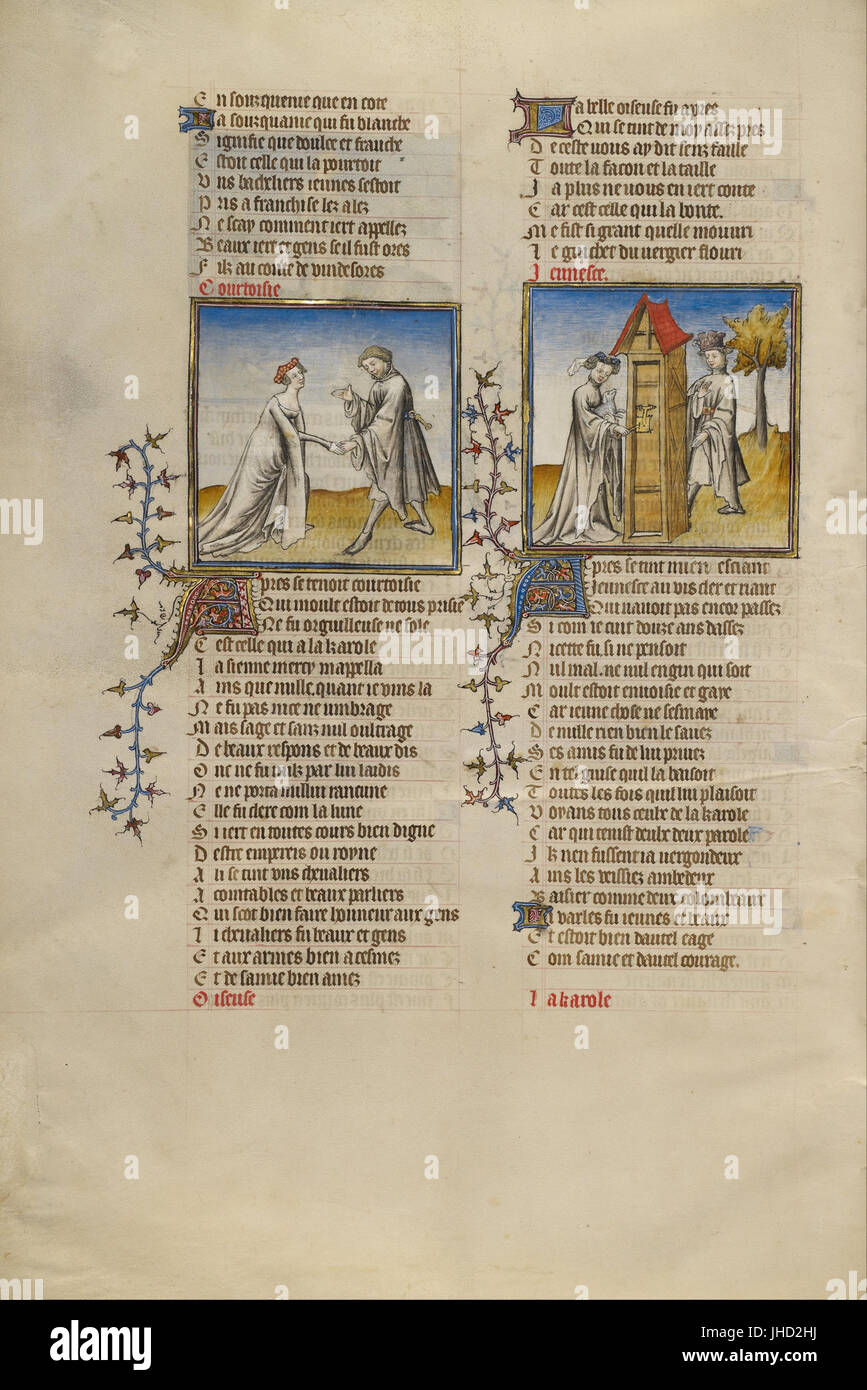 En sourquenie que en cote
La sourquanie qui fu blanche
Signifie que doulce et franche
Estoit celle qui la portoit
Uns bacheliers iennes sestoit
Pris a franchise lez alez
Ne scay comment iert appellez
Beaux iert et gens se il fust ores
Filz au conte de vindesores
Courtoisie
Apres se tenoit courtoisie
Qui moult estoit de tous prisie
Ne fu orguilleuse ne fole
Cest celle qui a la karole
La sienne mercy mappella
Ains que nulle quant ie vins la
Ne fu pas nice ne umbrage
Mais sage et sanz nul oultrage
De beaux respons et de beaux dis
Onc ne fu nulz par lui laidis
Ne ne porta nullui rancune
Elle fu clere com la lune
Si iert en toutes cours bien digne
Destre empereis ou royne
A li se tint uns chevaliers
Acointables et beaux parliers
Qui scot bien faire honneur aux gens
Li chevaliers fu beaux et gens
Et aux armes bien acesmez
Et de samie bien amez
Oiseuse
La belle oiseuse fu apres
Qui se tint de moy assez pres
De ceste vous ay dit senz faille
Toute la facon et la taille
Ja plus ne vous en iert conte
Car cest celle qui la bonte.
Me fist si grant quelle mouuri
Le guichet du vergier flouri
Jennesce.
Apres se tint mien esciant
Jeunesce au vis cler et riant
Qui navoit pas encor passez
Si com ie cuit douze ans dassez
Nicette fu, si ne pensoit
Nul mal. ne nul engin qui soit
Moult estoit envoisie et gaye
Car ieune chose ne sesmaye
De nulle rien bien le savez
Ses amis fu de lui privez
En tel guise quil la baisoit
Toutes les fois quil lui plaisoit
Voyans tous ceulx de la karole
Car qui tenist deulx deux parole
Ilz nen fussent ia vergondeux
Ains les veissiez ambedeux
Baisier comme deux colombeaux
Ly varles fu iennes et beaux
Et estoit bien dautel eage
Com samie et dautel courage.
La karole
alamy
alamy stock photo
JHD2HJ
www.alamy.com